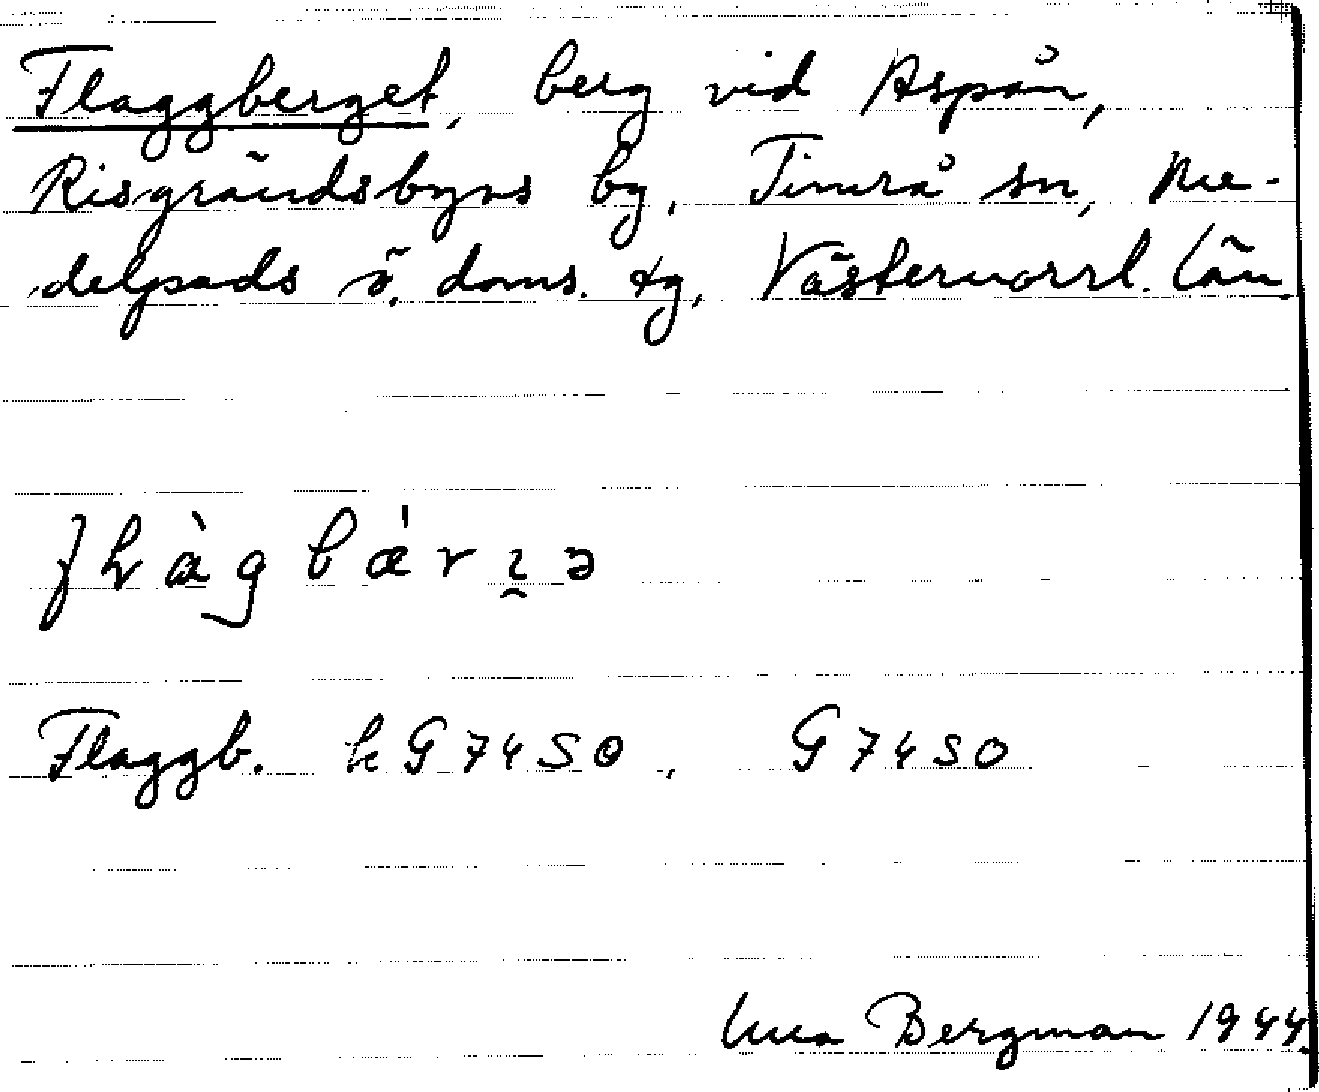 Flaggberget, berg vid Aspån,
Risgrändsbyns by, Timrå sn, Me-
delpads ö. doms. tg, Västernorrl. län.
Flaggb. k G7450, G7450
Bergman 1944.